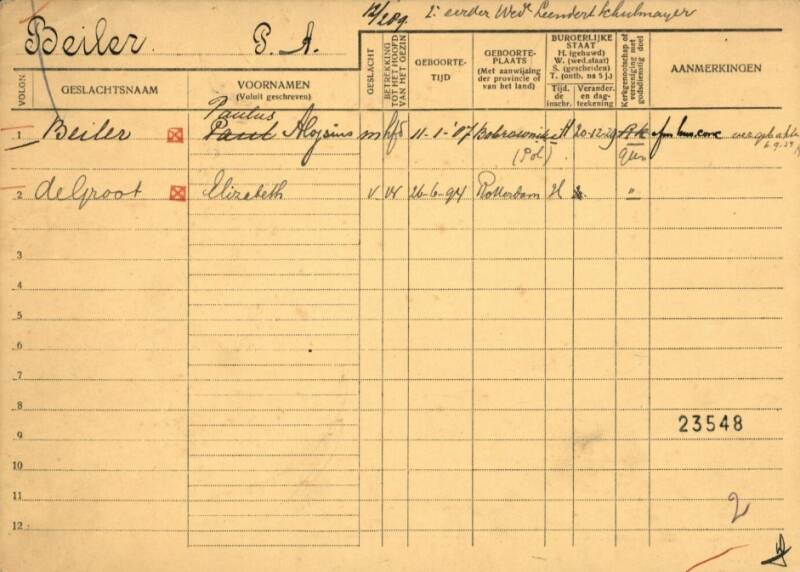 12/289 2: eerder Wed. Leendert Schulmayer
Beiler. P. A.
VOLGN.
GESLACHTSNAAM
VOORNAMEN
(Voluit geschreven)
GESLACHT
BETREKKING TOT HET HOOFD VAN HET GEZIN
GEBOORTE-TIJD
GEBOORTE-PLAATS
(Met aanwijzing der provincie of van het land)
BURGERLIJKE STAAT
H. (gehuwd)
W. (wed.staat)
S. (gescheiden)
T. (ontb. na 5 j.)
Tijd. de inschr.
Verander. en dag-teekening
Kerkgenootschap of vereeniging met godsdienstig doel
AANMERKINGEN
Paulus
1 Beiler Paul Aloysius m hfd 11-1-'07 H 20-12-29 RK
(Pol) Geen 6.9.39
2 de Groot Elizabeth v vr 26-6-94 Rotterdam H "
3
4
5
6
7
8
9
23548
10
11
2
12